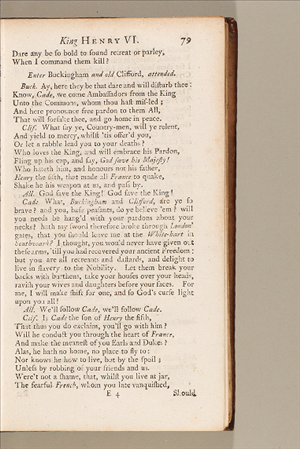 King HENRY VI. 79
Dare any be so bold to sound retreat or parley,
When I command them kill?
Enter Buckingham and old Clifford, attended.
Buck. Ay, here they be that dare and will disturb thee:
Know, Cade, we come Ambassadors from the King
Unto the Commons, whom thou hast mis-led;
And here pronounce free pardon to them All,
That will forsake thee, and go home in peace.
Clif. What say ye, Country-men, will ye relent,
And yield to mercy, whilst 'tis offer'd you,
Or let a rabble lead you to your deaths?
Who loves the King, and will embrace his Pardon,
Fling up his cap, and say, God save his Majesty!
Who hateth him, and honours not his father,
Henry the fifth, that made all France to quake,
Shake he his weapon at us, and pass by.
All. God save the King! God save the King!
Cade. What, Buckingham and Clifford, are ye so
brave? and you, base peasants, do ye believe 'em? will
you needs be hang'd with your pardons about your
necks? hath my sword therefore broke through London
gates, that you should leave me at the White-hart in
Southwark? I thought, you would never have given out
these arms, 'till you had recovered your ancient freedom:
but you are all recreants and dastards, and delight to
live in slavery to the Nobility. Let them break your
backs with burthens, take your houses over your heads,
ravish your wives and daughters before your faces. For
me, I will make shift for one, and so God's curse light
upon you all!
All. We'll follow Cade, we'll follow Cade.
Clif. Is Cade the son of Henry the fifth,
That thus you do exclaim, you'll go with him?
Will he conduct you through the heart of France,
And make the meanest of you Earls and Dukes?
Alas, he hath no home, no place to fly to:
Nor knows he how to live, but by the spoil;
Unless by robbing of your friends and us.
Were't not a shame, that, whilst you live at jar,
The fearful French, whom you late vanquished,
E 4 Should